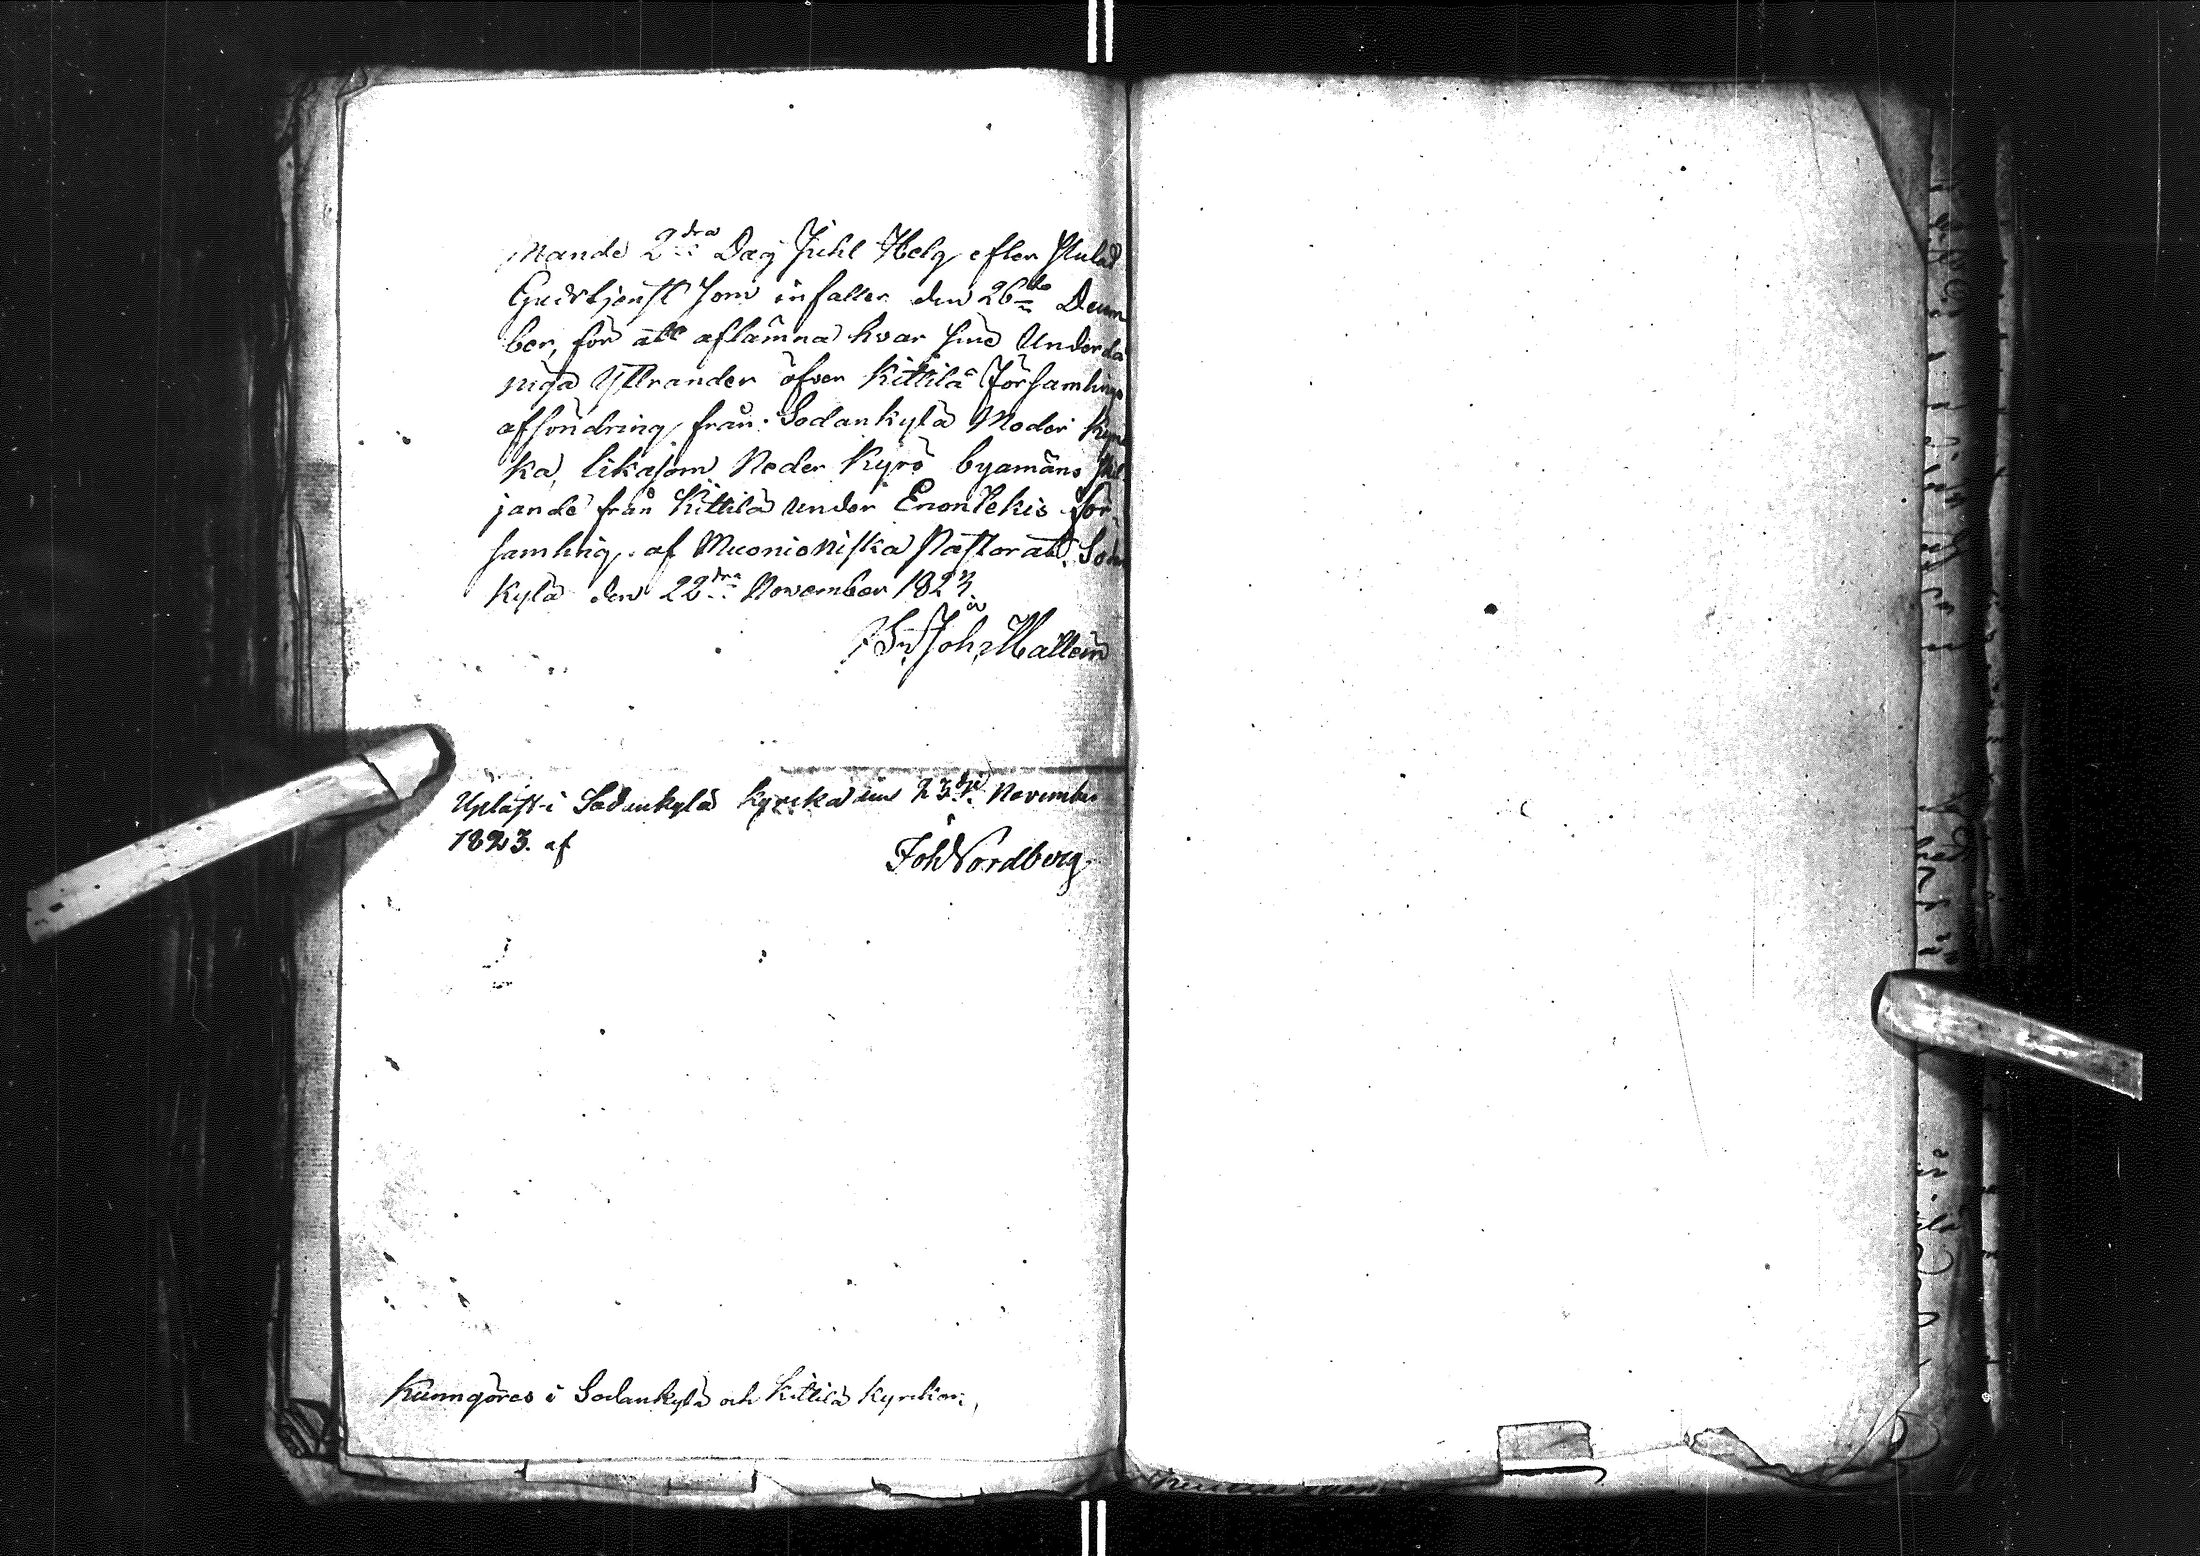 mande 2dra Dag Juhl Helg efter slutad
Gudstjenst som infaller den 26te Decem
ber, för att aflämna hvar sine Underdå
niga Yttranden öfver Kittilä Församlings
afsöndring från Sodankylä Moder Kyr
ka, likasom Neder Kyrö byamäns skil
jande från Kittilä under Enontekis för-
samling af Muonioniska Pastorat. Sodan
kylä den 22dra November 1823.
Joh Wallein
Upläst i Sodankylä Kyrcka den 23dje November
1823. af
Joh Nordberg
Kunngöres i Sodankylä och Kittilä Kyrckor,